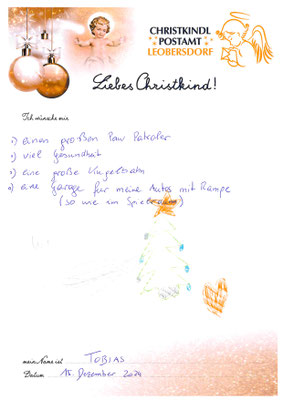 CHRISTKINDL
POSTAMT
LEOBERSDORF
Liebes Christkind!
Ich wünsche mir
1) einen großen Paw Patroler
2) viel Gesundheit
3) eine große Kugelbahn
4) eine garage für meine Autos mit Rampe
(so wie im Spielraum)
mein Name ist TOBIAS
Datum 15. Dezember 2024